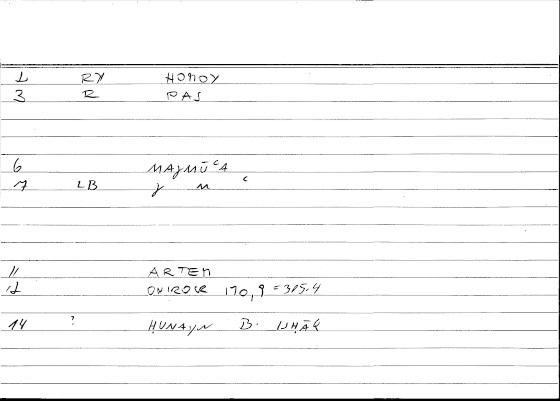 1 RX HOMOY
3 R PAS
6 MAJMŪʿA
7 LB J M ʿ
11 ARTEM
12 ONIROCR 170,9 = 385.4
14 ? ḤUNAYN B. ISḤĀQ